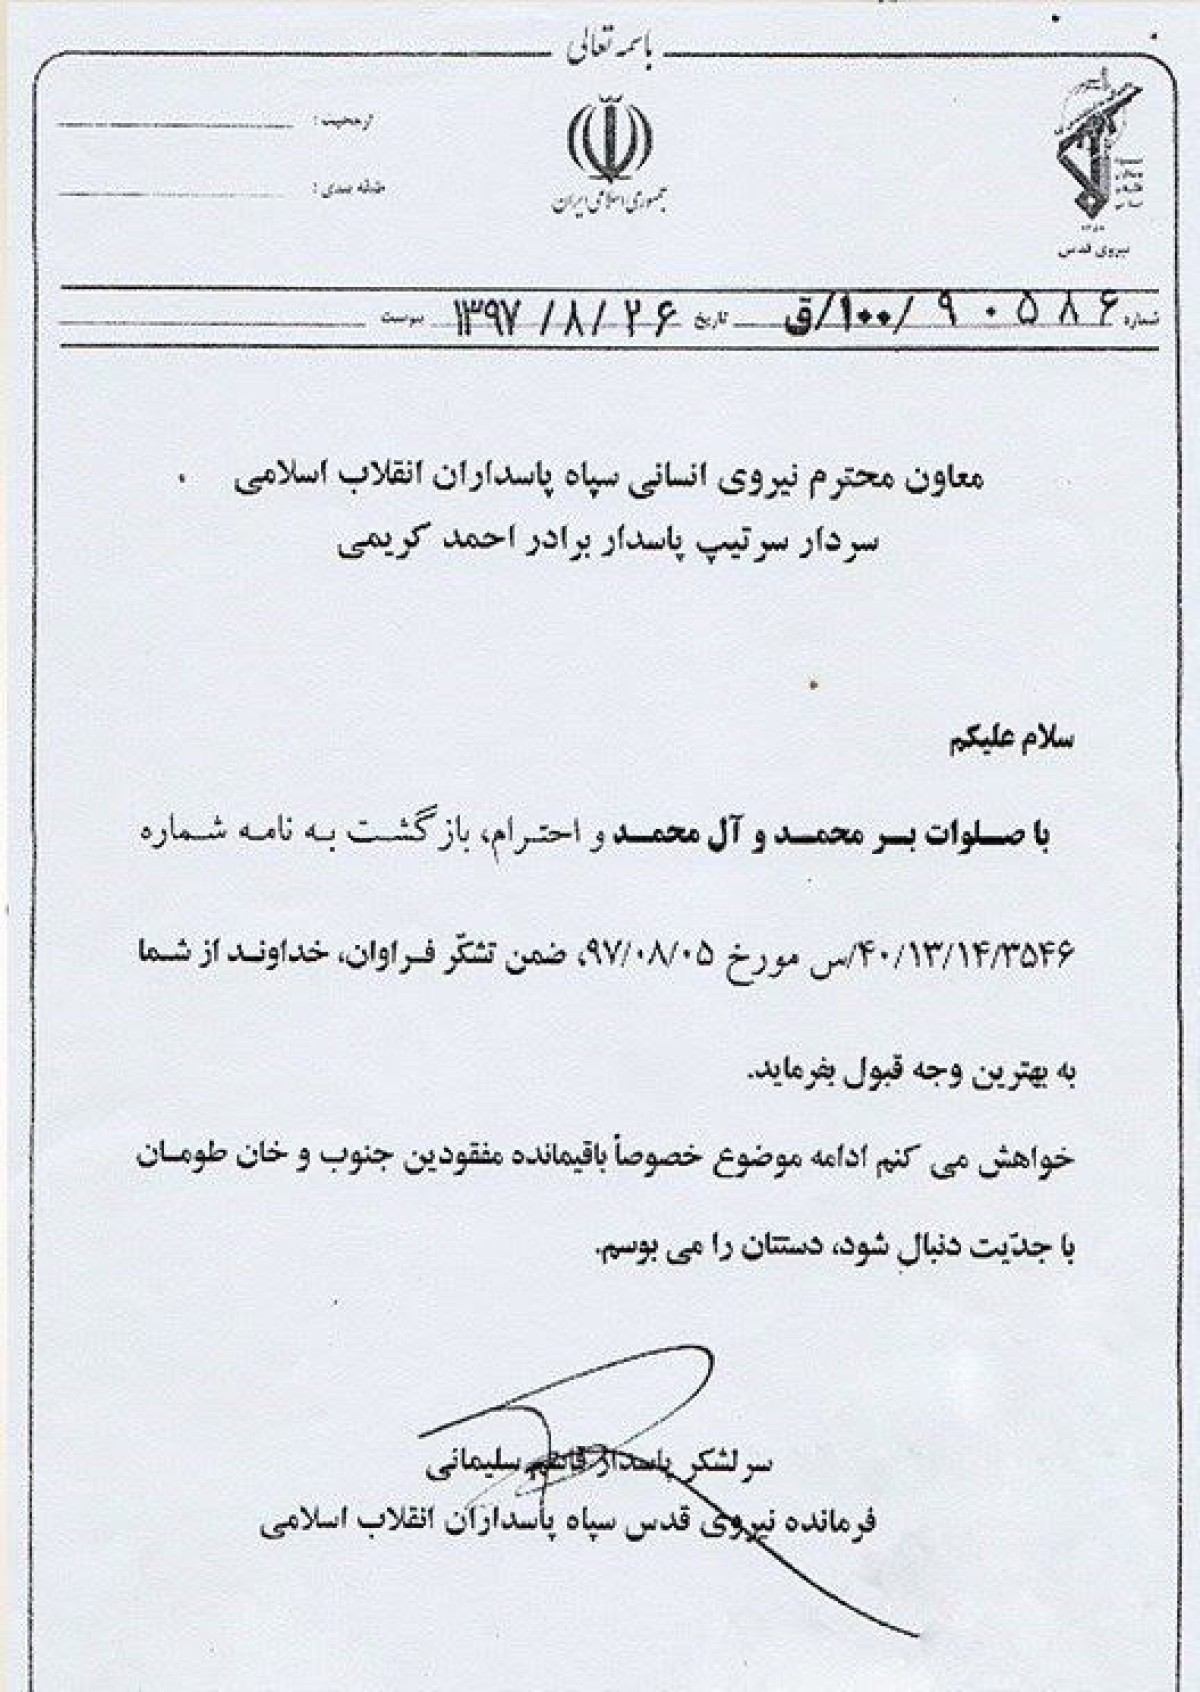 باسمه تعالی
جمهوری اسلامی ایران
نیروی قدس
از حیث :
طبقه بندی :
شماره ۹۰۵۸۶/۱۰۰/ق تاریخ ۱۳۹۷/۸/۲۶ پیوست
معاون محترم نیروی انسانی سپاه پاسداران انقلاب اسلامی
سردار سرتیپ پاسدار برادر احمد کریمی
سلام علیکم
با صلوات بر محمد و آل محمد و احترام، بازگشت به نامه شماره
۴۰/۱۳/۱۴/۳۵۴۶/س مورخ ۹۷/۰۸/۰۵، ضمن تشکّر فراوان، خداوند از شما
به بهترین وجه قبول بفرماید.
خواهش می کنم ادامه موضوع خصوصاً باقیمانده مفقودین جنوب و خان طومان
با جدّیت دنبال شود، دستتان را می بوسم.
سرلشکر پاسدار قاسم سلیمانی
فرمانده نیروی قدس سپاه پاسداران انقلاب اسلامی